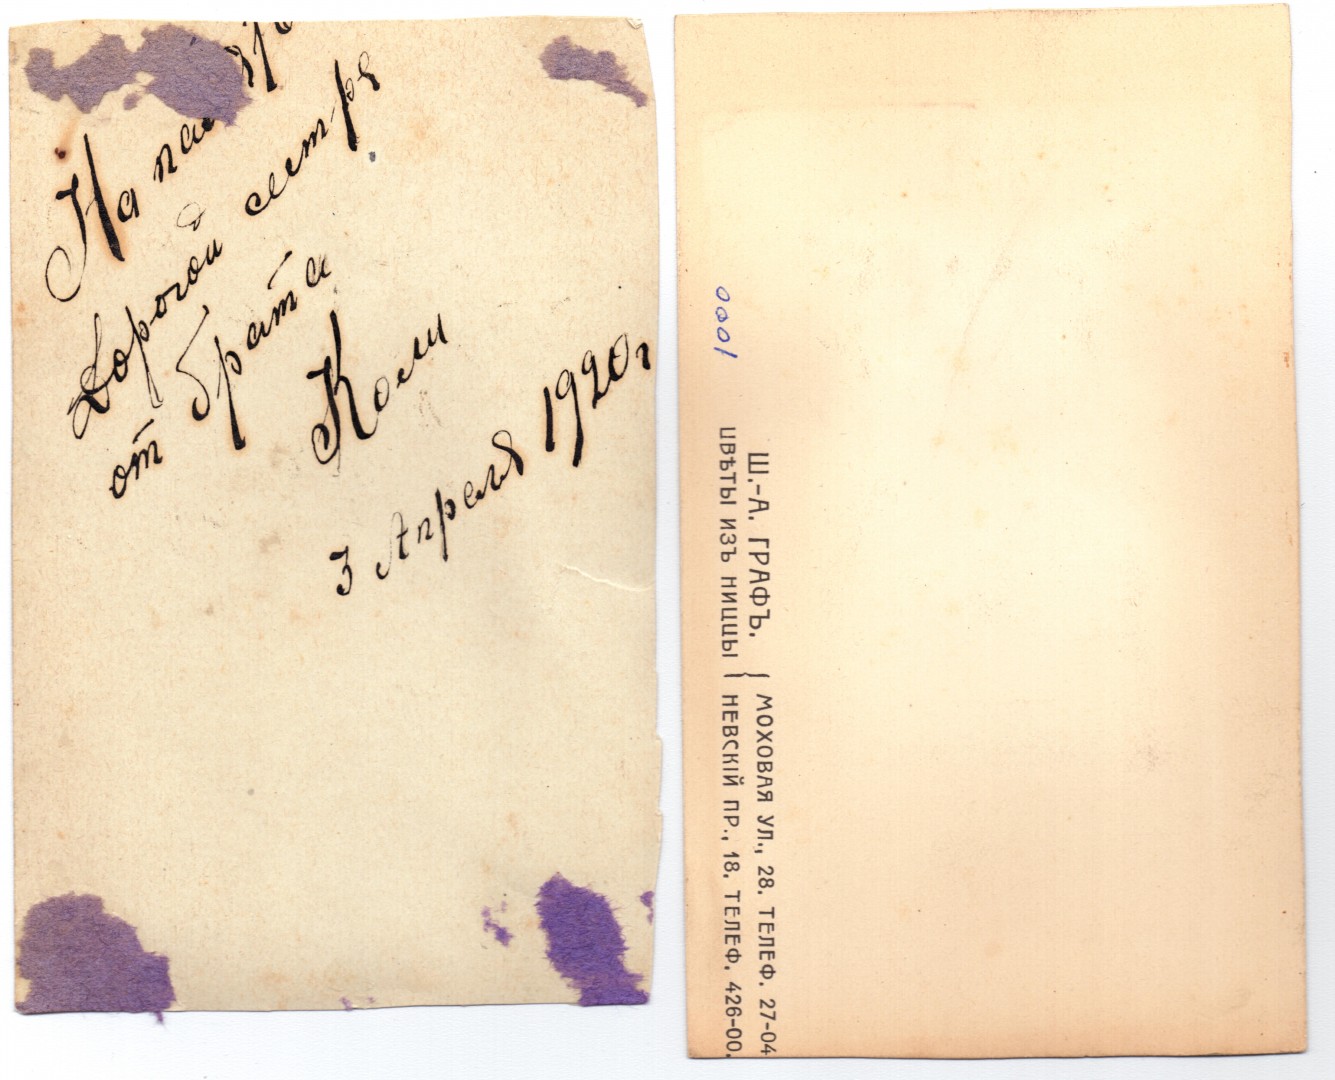 На
Дорогой сестре
от брата
Коли
3 Апреля 1920 г
1000
Ш.-А. ГРАФЪ. { МОХОВАЯ УЛ., 28. ТЕЛЕФ. 27-04
ЦВѢТЫ ИЗЪ НИЦЦЫ { НЕВСКІЙ ПР., 18. ТЕЛЕФ. 426-00.